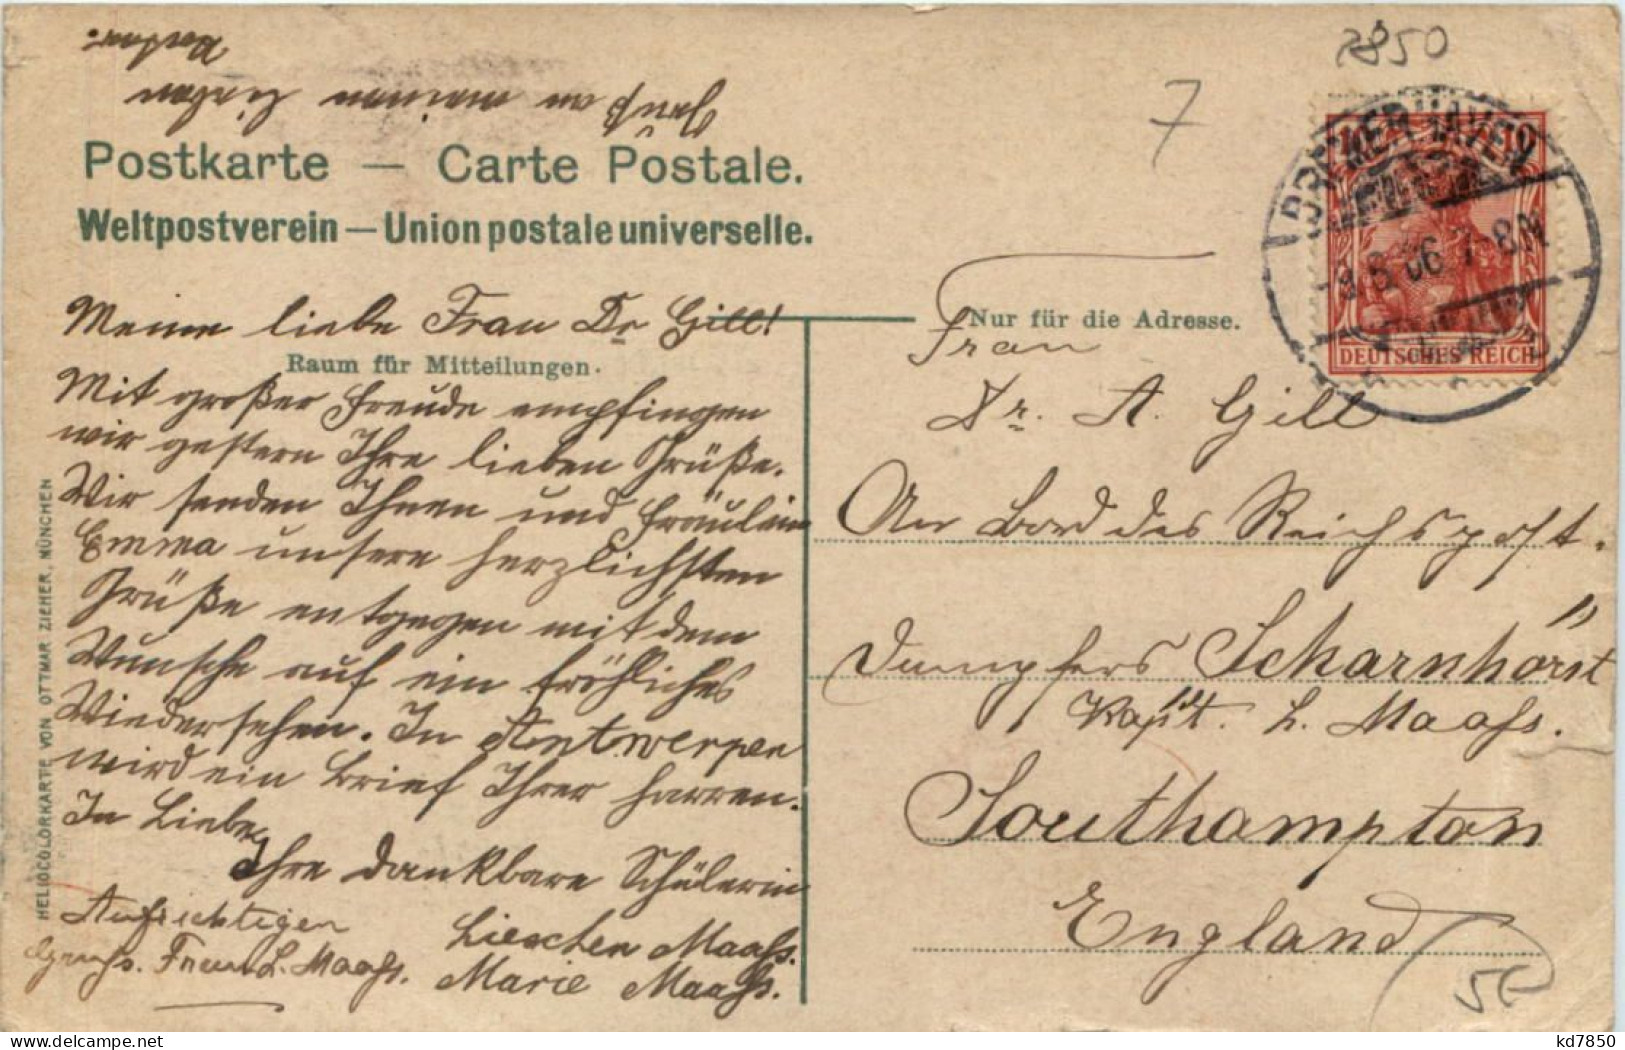 7850
7
Gruß an meinen lieben
Postkarte — Carte Postale.
Weltpostverein — Union postale universelle.
BREMERHAVEN
9.8.06 7-8N
10
DEUTSCHES REICH
Meine liebe Frau Dr Gill!
Raum für Mitteilungen.
Mit großer Freude empfingen
wir gestern Ihre lieben Grüße.
Wir senden Ihnen und Fräulein
Emma unsere herzlichsten
Grüße entgegen mit dem
Wunsche auf ein fröhliches
Wiedersehen. In Antwerpen
wird ein Brief Ihrer harren.
In Liebe
Ihre dankbare Schülerin
Lieschen Maaß.
Marie Maaß.
Aufrichtigen
Gruß. Frau L. Maaß.
HELIOCOLORKARTE VON OTTMAR ZIEHER, MÜNCHEN
Nur für die Adresse.
Frau
Dr. A. Gill
An Bord des Reichspost-
dampfers Scharnhorst"
Kapt. L. Maaß.
Southampton
England
kd7850